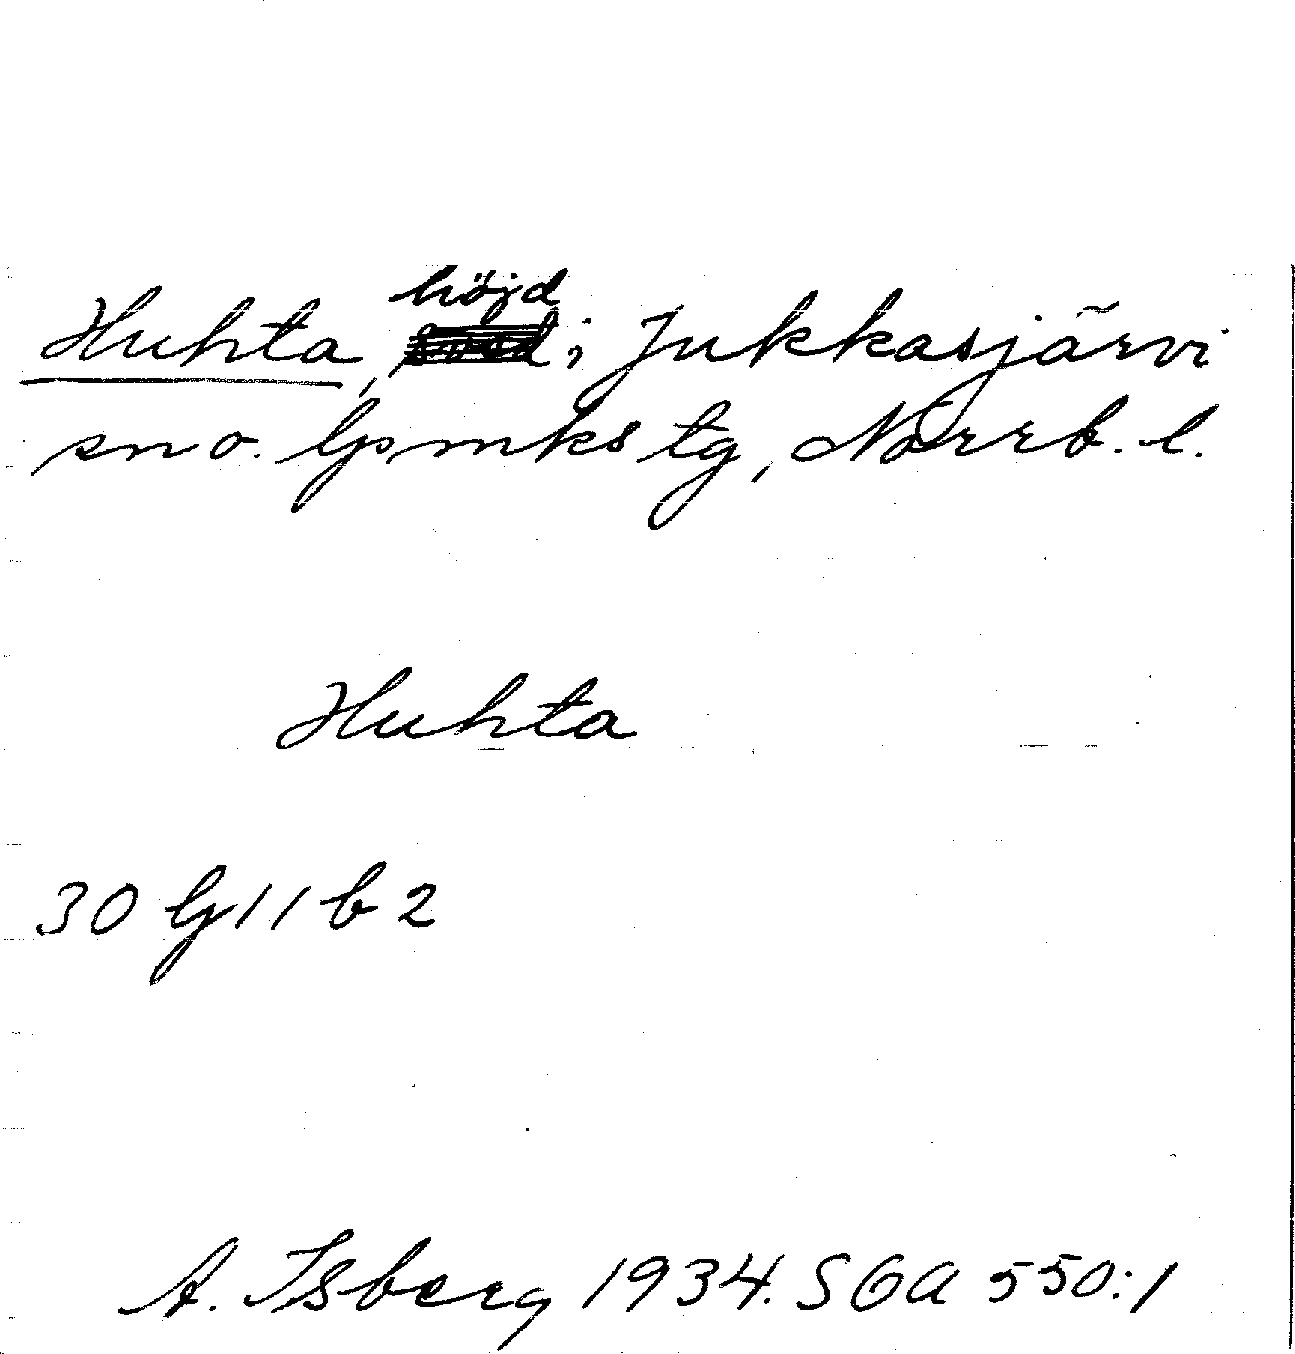 Huhta, höjd i Jukkasjärvi
sn o. Gmks tg, Norrb. l.
Huhta
30 G 11 b 2
A. Isberg 1934. SOA 550:1